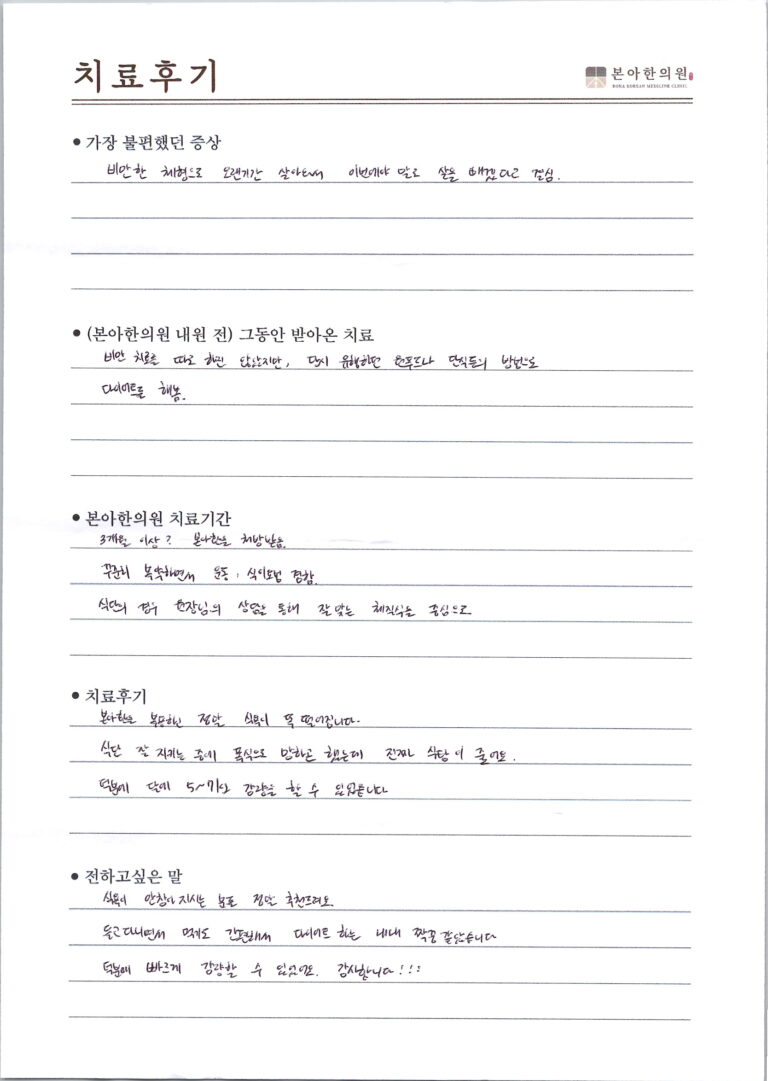 치료후기
본아한의원
BONA KOREAN MEDICINE CLINIC
● 가장 불편했던 증상
비만한 체형으로 오랜기간 살아와서 이번에야 말로 살을 빼겠다고 결심.
● (본아한의원 내원 전) 그동안 받아온 치료
비만 치료를 따로 하진 않았지만, 당시 유행하던 원푸드나 단식등의 방법으로
다이어트를 해봄.
● 본아한의원 치료기간
3개월 이상? 본아환을 처방받음.
꾸준히 복약하면서 운동, 식이요법 겸함.
식단의 경우 원장님의 상담을 통해 잘 맞는 체질식을 중심으로
● 치료후기
본아환을 복용하신 정말 식욕이 뚝 떨어집니다.
식단 잘 지키는 중에 폭식으로 망하곤 했는데 진짜 식탐이 줄어요.
덕분에 달에 5~7키로 감량을 할 수 있었습니다
● 전하고싶은 말
식욕이 안참아지시는 분들 정말 추천드려요.
들고다니면서 먹기도 간편해서 다이어트 하는 내내 짝꿍 같았습니다
덕분에 빠르게 감량할 수 있었어요. 감사합니다!!!